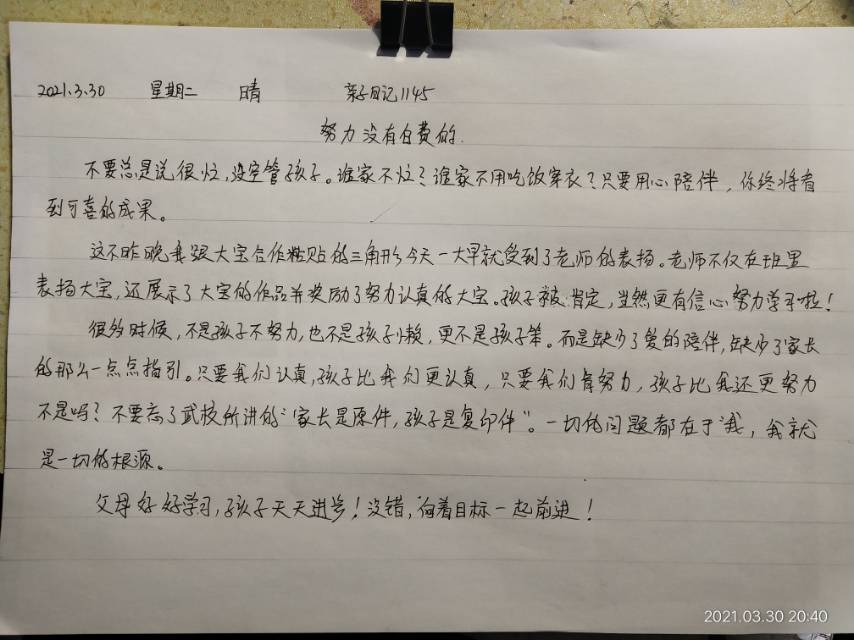 2021.3.30 星期二 晴 亲子日记1145
努力没有白费的.
不要总是说很忙,没空管孩子。谁家不忙?谁家不用吃饭穿衣?只要用心陪伴,你终将看
到可喜的成果。
这不昨晚我跟大宝合作粘贴的三角形今天一大早就受到了老师的表扬。老师不仅在班里
表扬大宝,还展示了大宝的作品并奖励了努力认真的大宝。孩子被肯定,当然更有信心努力学习啦!
很多时候,不是孩子不努力,也不是孩子懒,更不是孩子笨。而是缺少了爱的陪伴,缺少了家长
的那么一点点指引。只要我们认真,孩子比我们更认真,只要我们肯努力,孩子比我还更努力
不是吗?不要忘了武校所讲的“家长是原件,孩子是复印件”。一切的问题都在于“我,我就
是一切的根源。
父母好好学习,孩子天天进步!没错,向着目标一起前进!
2021.03.30 20:40